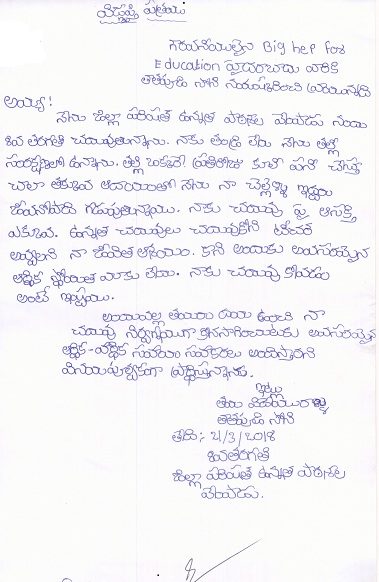 విజ్ఞప్తి పత్రము
గౌరవనీయులైన Big help for
Education హైదరాబాదు వారికి
తాతపూడి సోని నమస్కరించి వ్రాయునది
అయ్యా!
నేను జిల్లా పరిషత్ ఉన్నత పాఠశాల నందు
10వ తరగతి చదువుతున్నాను. నాకు తండ్రి లేరు నేను తల్లి
సంరక్షణలో ఉన్నాను. తల్లి ఒక్కరే ప్రతిరోజు కూలి పని చేస్తూ
చాలా తక్కువ ఆదాయంతో నేను నా చెల్లెళ్ళు ఇద్దరు
జీవనోపాధి గడుపుతున్నాము. నాకు చదువు పై ఆసక్తి
ఎక్కువ. ఉన్నత చదువులు చదువుకొని టీచర్
అవ్వాలని నా జీవిత ఆశయం. కాని అందుకు అవసరమైన
ఆర్థిక స్థోమత మాకు లేదు. నాకు చదువు కోవడం
అంటే ఇష్టము.
అందువల్ల తమరు దయ ఉంచి నా
చదువు నిర్విఘ్నముగా కొనసాగించుటకు అవసరమైన
ఆర్థిక-హార్థిక సహాయ సహకారలు అందిస్తారని
వినయపూర్వకంగా ప్రార్థిస్తున్నాను.
ఇట్లు
తమ విధేయురాలు
తాతపూడి సోని
తేది:- 21/3/2018
10వతరగతి
జిల్లా పరిషత్ ఉన్నత పాఠశాల